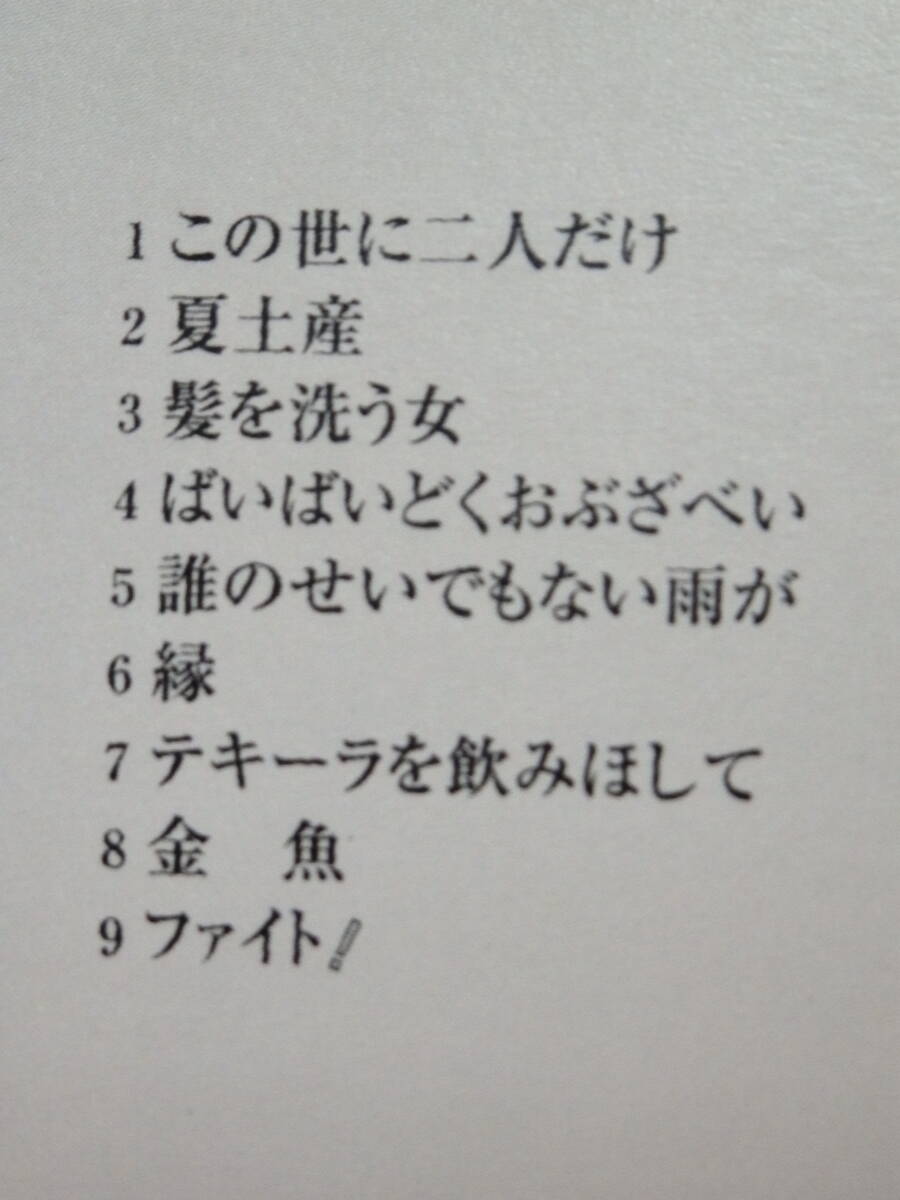 1 この世に二人だけ
2 夏土産
3 髪を洗う女
4 ばいばいどくおぶざべい
5 誰のせいでもない雨が
6 縁
7 テキーラを飲みほして
8 金　魚
9 ファイト!